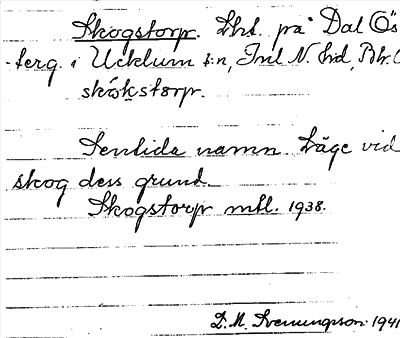 Skogstorp. Lht. på Dal Ös
terg. i Ucklum sn, Inl N. hd, Bh. l
skókstorp.
Sentida namn. Läge vid
skog dess grund.
Skogstorp mtl. 1938.
D. M. Svenungsson 1941